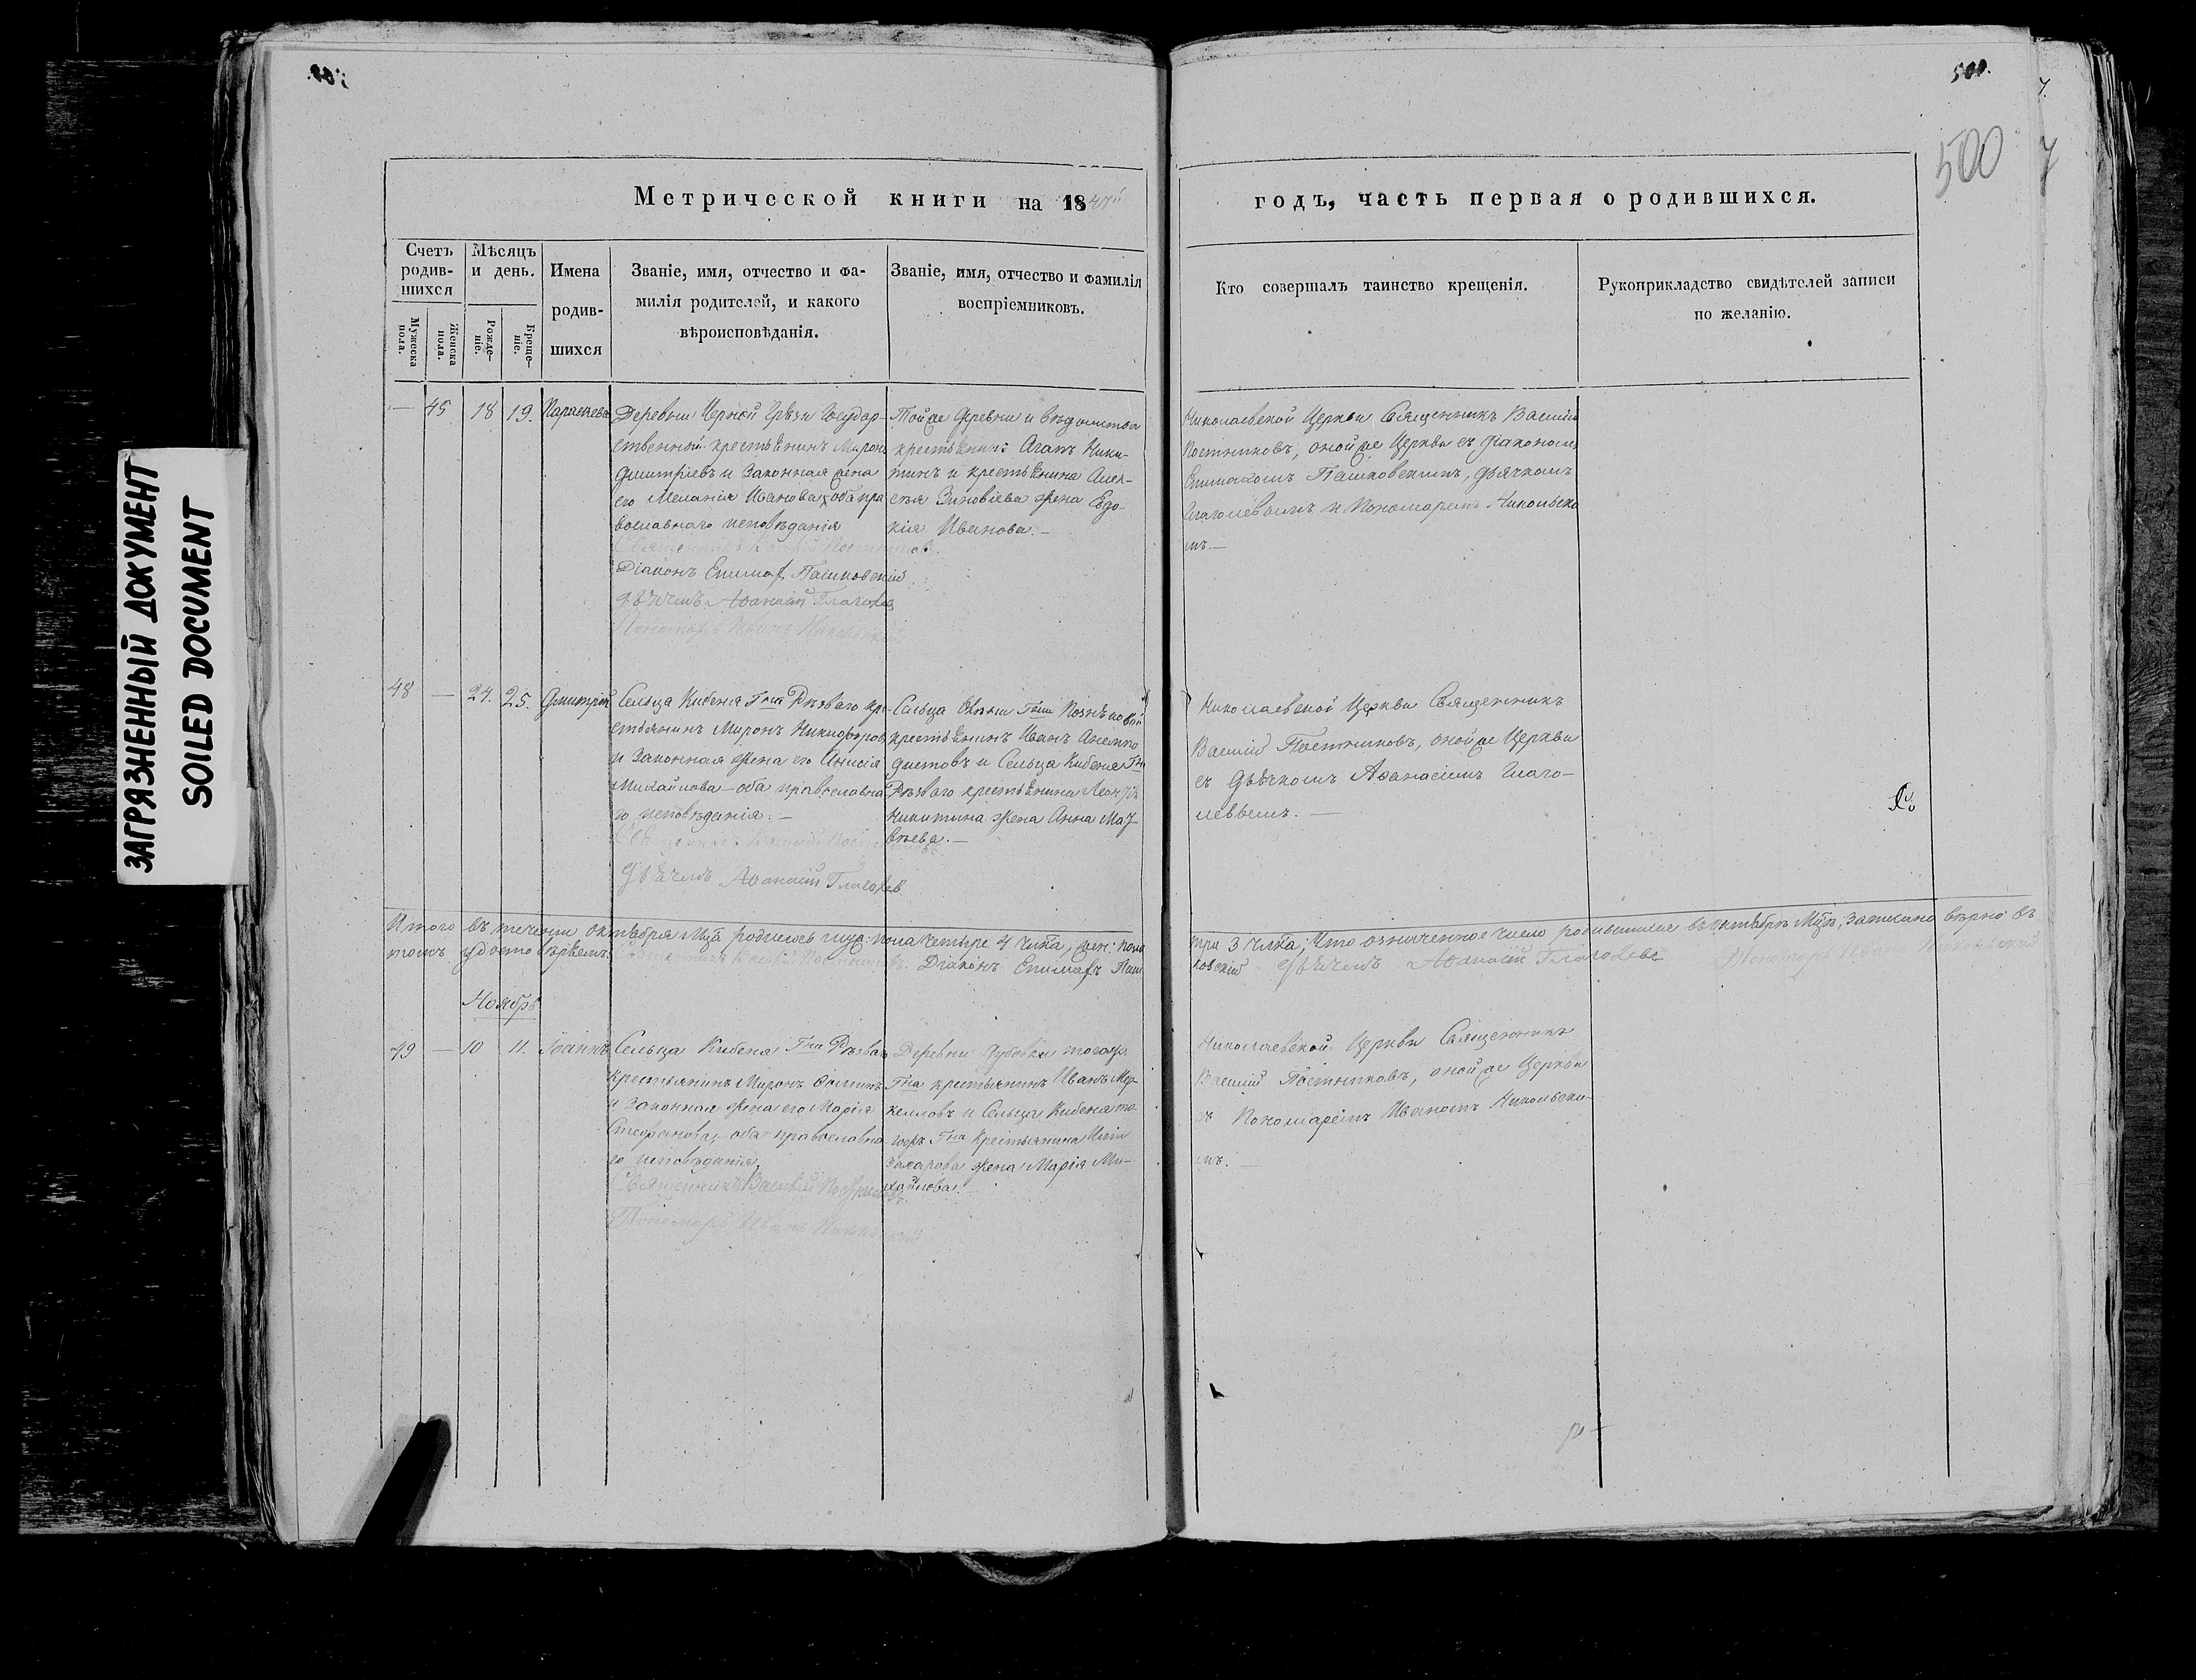 500.
500
7.
7
ЗАГРЯЗНЕННЫЙ ДОКУМЕНТ
SOILED DOCUMENT
Метрической книги на 1847
годъ, часть первая о родившихся.
Счетъ родив-шихся
Мужеска пола.
Женска пола.
Мѣсяцъ и день.
Рожде-ніе.
Креще-ніе.
Имена родив-шихся
Званіе, имя, отчество и фа-
милія родителей, и какого
вѣроисповѣданія.
Званіе, имя, отчество и фамилія
воспріемниковъ.
Кто совершалъ таинство крещенія.
Рукоприкладство свидѣтелей записи
по желанію.
— 45 18 19. Параскева
Деревни Черной Грязи Государ-
ственный крестьянинъ Миронъ
Дмитріевъ и законная жена
его Меланія Иванова, оба пра
вославнаго исповѣданія
Священникъ Василій Постниковъ.
Діаконъ Епимахъ Пашковскій
Дьячекъ Аѳанасій Глаголев
Пономарь Иванъ Никольскій
Тойже деревни и вѣдомства
крестьянинъ Агапъ Ники-
тинъ и крестьянина Алек-
сѣя Зиновіева жена Евдо-
кія Иванова.—
Николаевской Церкви Священникъ Василій
Постниковъ, онойже Церкви съ діакономъ
Епимахомъ Пашковскимъ, дьячкомъ
Глаголевымъ и Пономаремъ Никольски
мъ.—
48 — 24. 25. Дмитрій
Сельца Кибеня Гна Рѣзваго кре
стьянинъ Миронъ Никифоровъ
и законная жена его Анисія
Михайлова—оба православна
го исповѣданія.—
Священникъ Василій Постниковъ
Дьячекъ Аѳанасій Глаголев
Сельца Гжи Познѣковой
крестьянинъ Иванъ Анемпо
дистовъ и Сельца Кибеня Гна
Рѣзваго крестьянина
Никитина жена Анна Мат
вѣева.—
Николаевской Церкви Священникъ
Василій Постниковъ, онойже Церкви
съ Дьячкомъ Аѳанасіемъ Глаго-
левымъ. —
Итого въ теченіи октября Мца родилось муж: пола четыре 4 члка, жен: пола
три 3 члка; Что означенное число родившихся въ октябрѣ Мцѣ, записано вѣрно въ
томъ удостовѣряемъ. Священникъ Василій Постниковъ. Діаконъ Епимахъ Паш
ковскій Дьячекъ Аѳанасій Глаголевъ Пономарь Иванъ Никольскій
Ноябрь
49 — 10 11. Іоаннъ
Сельца Кибеня Гна Рѣзваго
крестьянинъ Миронъ Осиповъ
и законная жена его Марія
Стефанова, оба православна
го исповѣданія
Священникъ Василій Постниковъ.
Пономарь Иванъ Никольскій
Деревни Дубовки тогоже
Гна крестьянинъ Иванъ Мар-
келловъ и Сельца Кибеня то
гоже Гна крестьянина Иліи
Захарова жена Марія Ми-
хайлова.
Николаевской Церкви Священникъ
Василій Постниковъ, онойже Церкви
съ Пономаремъ Иваномъ Никольски-
мъ. —